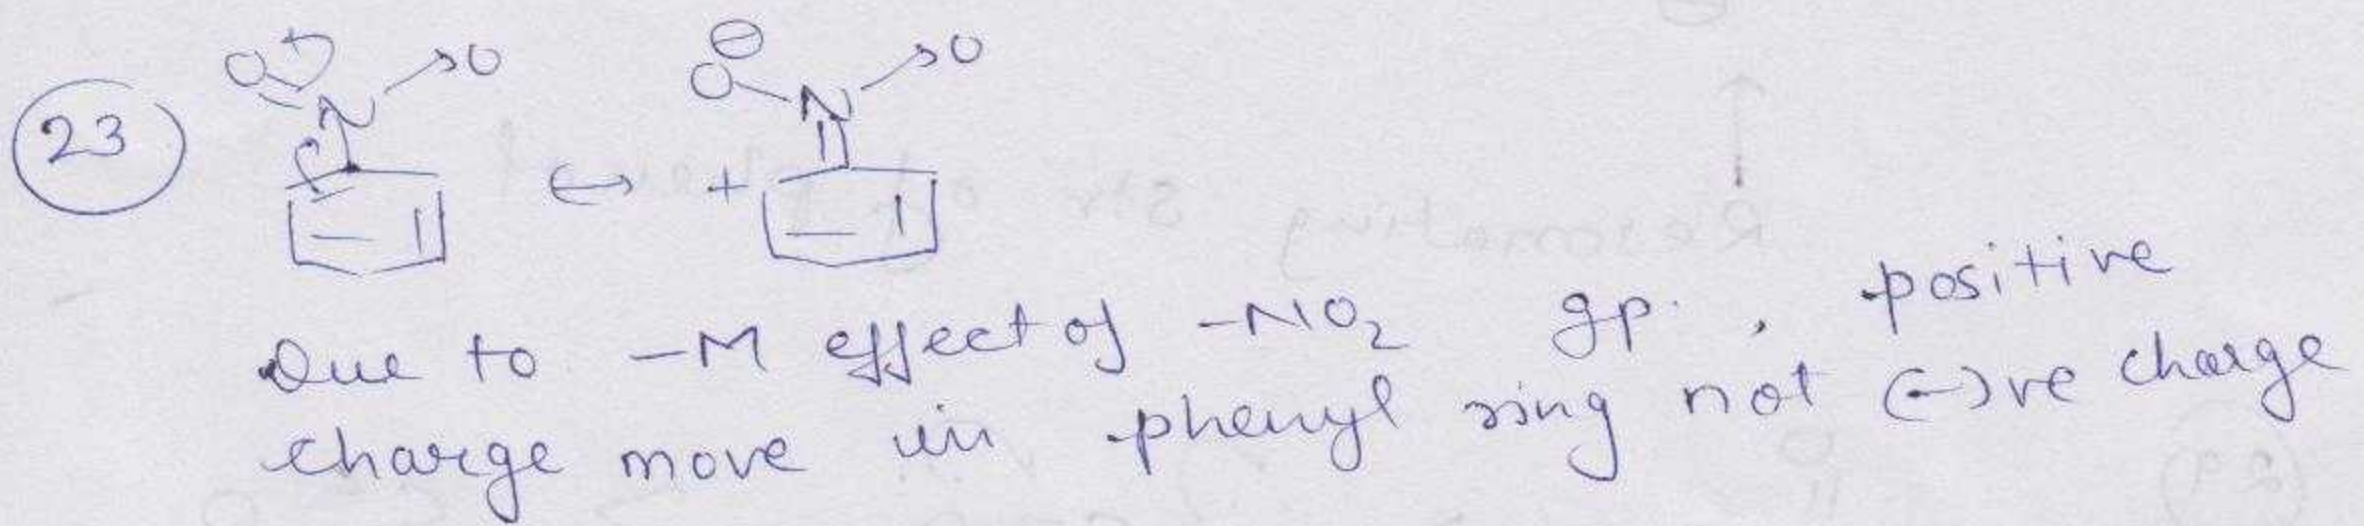 23
O N → O ↔ ⊖ O N → O
+
Due to -M effect of -NO2 gp. , positive
charge move in phenyl ring not (-)ve charge